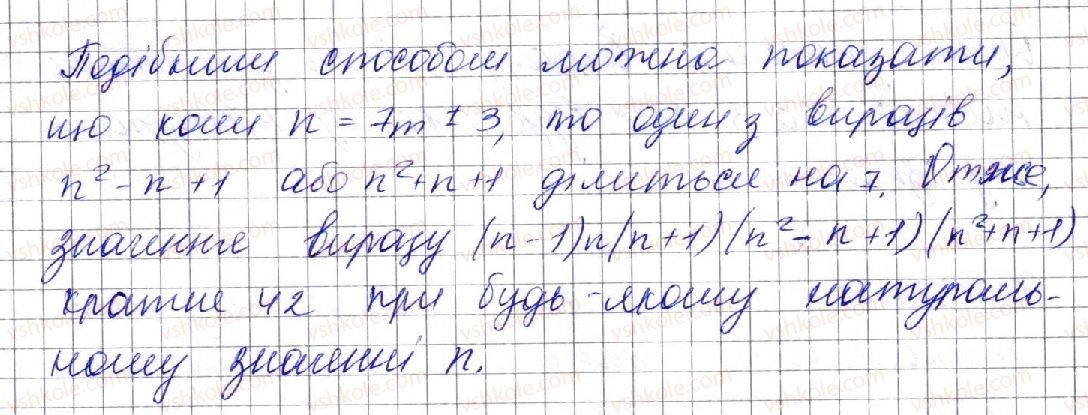 Подібним способом можна показати,
що коли n = 7m ± 3, то один з виразів
n² - n + 1 або n² + n + 1 ділиться на 7. Отже,
значення виразу (n - 1)n(n + 1)(n² - n + 1)(n² + n + 1)
кратне 42 при будь-якому натураль-
ному значенні n.